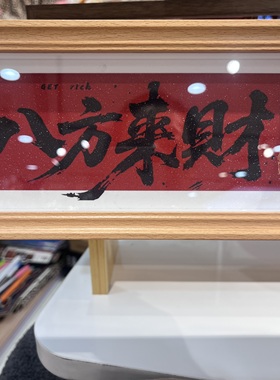 GET rich
八方来財